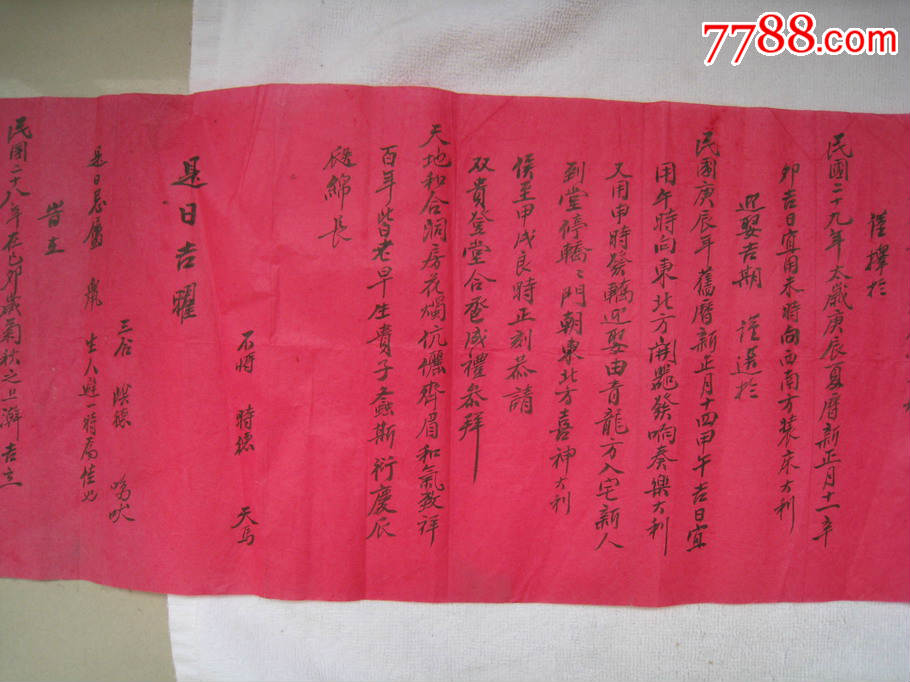 7788.com
謹擇於
民國二十九年太歲庚辰夏曆新正月十一辛
卯吉日宜用未時向西南方裝床大利
迎娶吉期 謹選於
民國庚辰年舊曆新正月十四甲午吉日宜
用午時向東北方開鑼發响奏樂大利
又用申時發轎迎娶由青龍方入宅新人
到堂停轎々門朝東北方喜神大利
俟至甲戌良時正刻恭請
双貴登堂合卺成禮參拜
天地和合洞房花燭伉儷齊眉和氣致祥
百年皆老早生貴子螽斯衍慶瓜
瓞綿長
是日吉曜
不將 時德 天馬
三合 陰德 鳴吠
是日忌屬 鼠 生人避一時為佳也
皆立
民國二十八年在己卯歲菊秋之旦 吉立